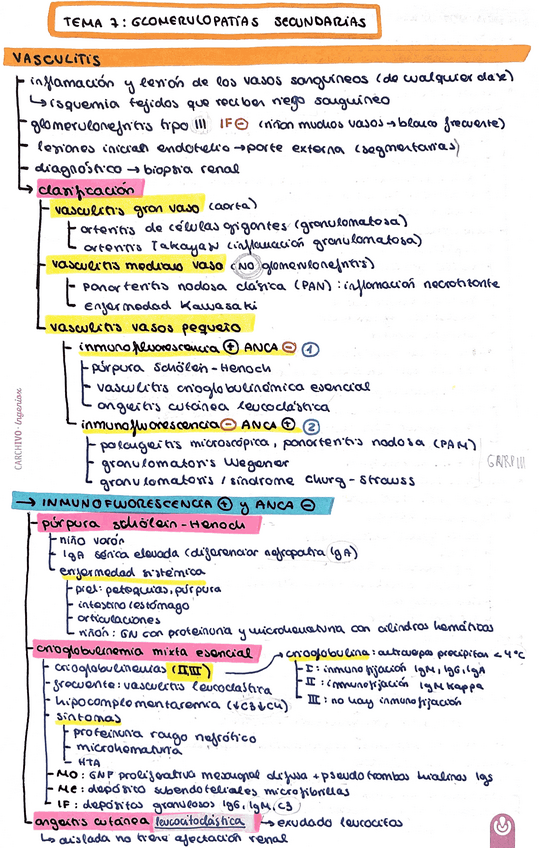 TEMA 7: GLOMERULOPATÍAS SECUNDARIAS
VASCULITIS
inflamación y lesión de los vasos sanguíneos (de cualquier clase)
↳ isquemia tejidos que reciben riego sanguíneo
glomerulonefritis tipo III IF ⊖ (riñon muchos vasos → blanco frecuente)
lesiones inician endotelio → parte externa (segmentarias)
diagnóstico → biopsia renal
clasificación
vasculitis gran vaso (aorta)
arteritis de células gigantes (granulomatosa)
arteritis Takayasu (inflamación granulomatosa)
vasculitis mediano vaso (NO glomerulonefritis)
panarteritis nodosa clásica (PAN): inflamación necrotizante
enfermedad Kawasaki
vasculitis vasos pequeño
inmunofluorescencia ⊕ ANCA ⊖ ①
púrpura schölein-Henoch
vasculitis crioglobulinémica esencial
angeitis cutánea leucoclástica
inmunofluorescencia ⊖ ANCA ⊕ ②
poliangeitis microscópica, panarteritis nodosa (PAM)
granulomatosis Wegener
granulomatosis / síndrome Churg-Strauss
CARCHIVO
→ INMUNOFLUORESCENCIA ⊕ y ANCA ⊖
púrpura schölein-Henoch
niño varón
IgA sérica elevada (diferenciar nefropatía IgA)
enfermedad sistémica
piel: petequias, púrpura
intestino/estómago
articulaciones
riñón: GN con proteinuria y microhematuria con cilindros hemáticos
crioglobulinemia mixta esencial
crioglobulina: anticuerpos precipitan < 4ºC
crioglobulinemias (II/III)
I: inmunofijación IgM, IgG, IgA
frecuente: vasculitis leucoclástica
II: inmunofijación IgM kappa
hipocomplementaremia (↓C3 ↓C4)
III: no hay inmunofijación
síntomas
proteinuria rango nefrótico
microhematuria
HTA
MO: GNF proliferativa mesangial difusa + pseudotrombos hialinos Igs
Me: depósito subendoteliales microfibrillas
IF: depósitos granulosos IgG, IgM, C3
angeitis cutánea leucocitoclástica → exudado leucocitos
↳ aislada no tiene afectación renal